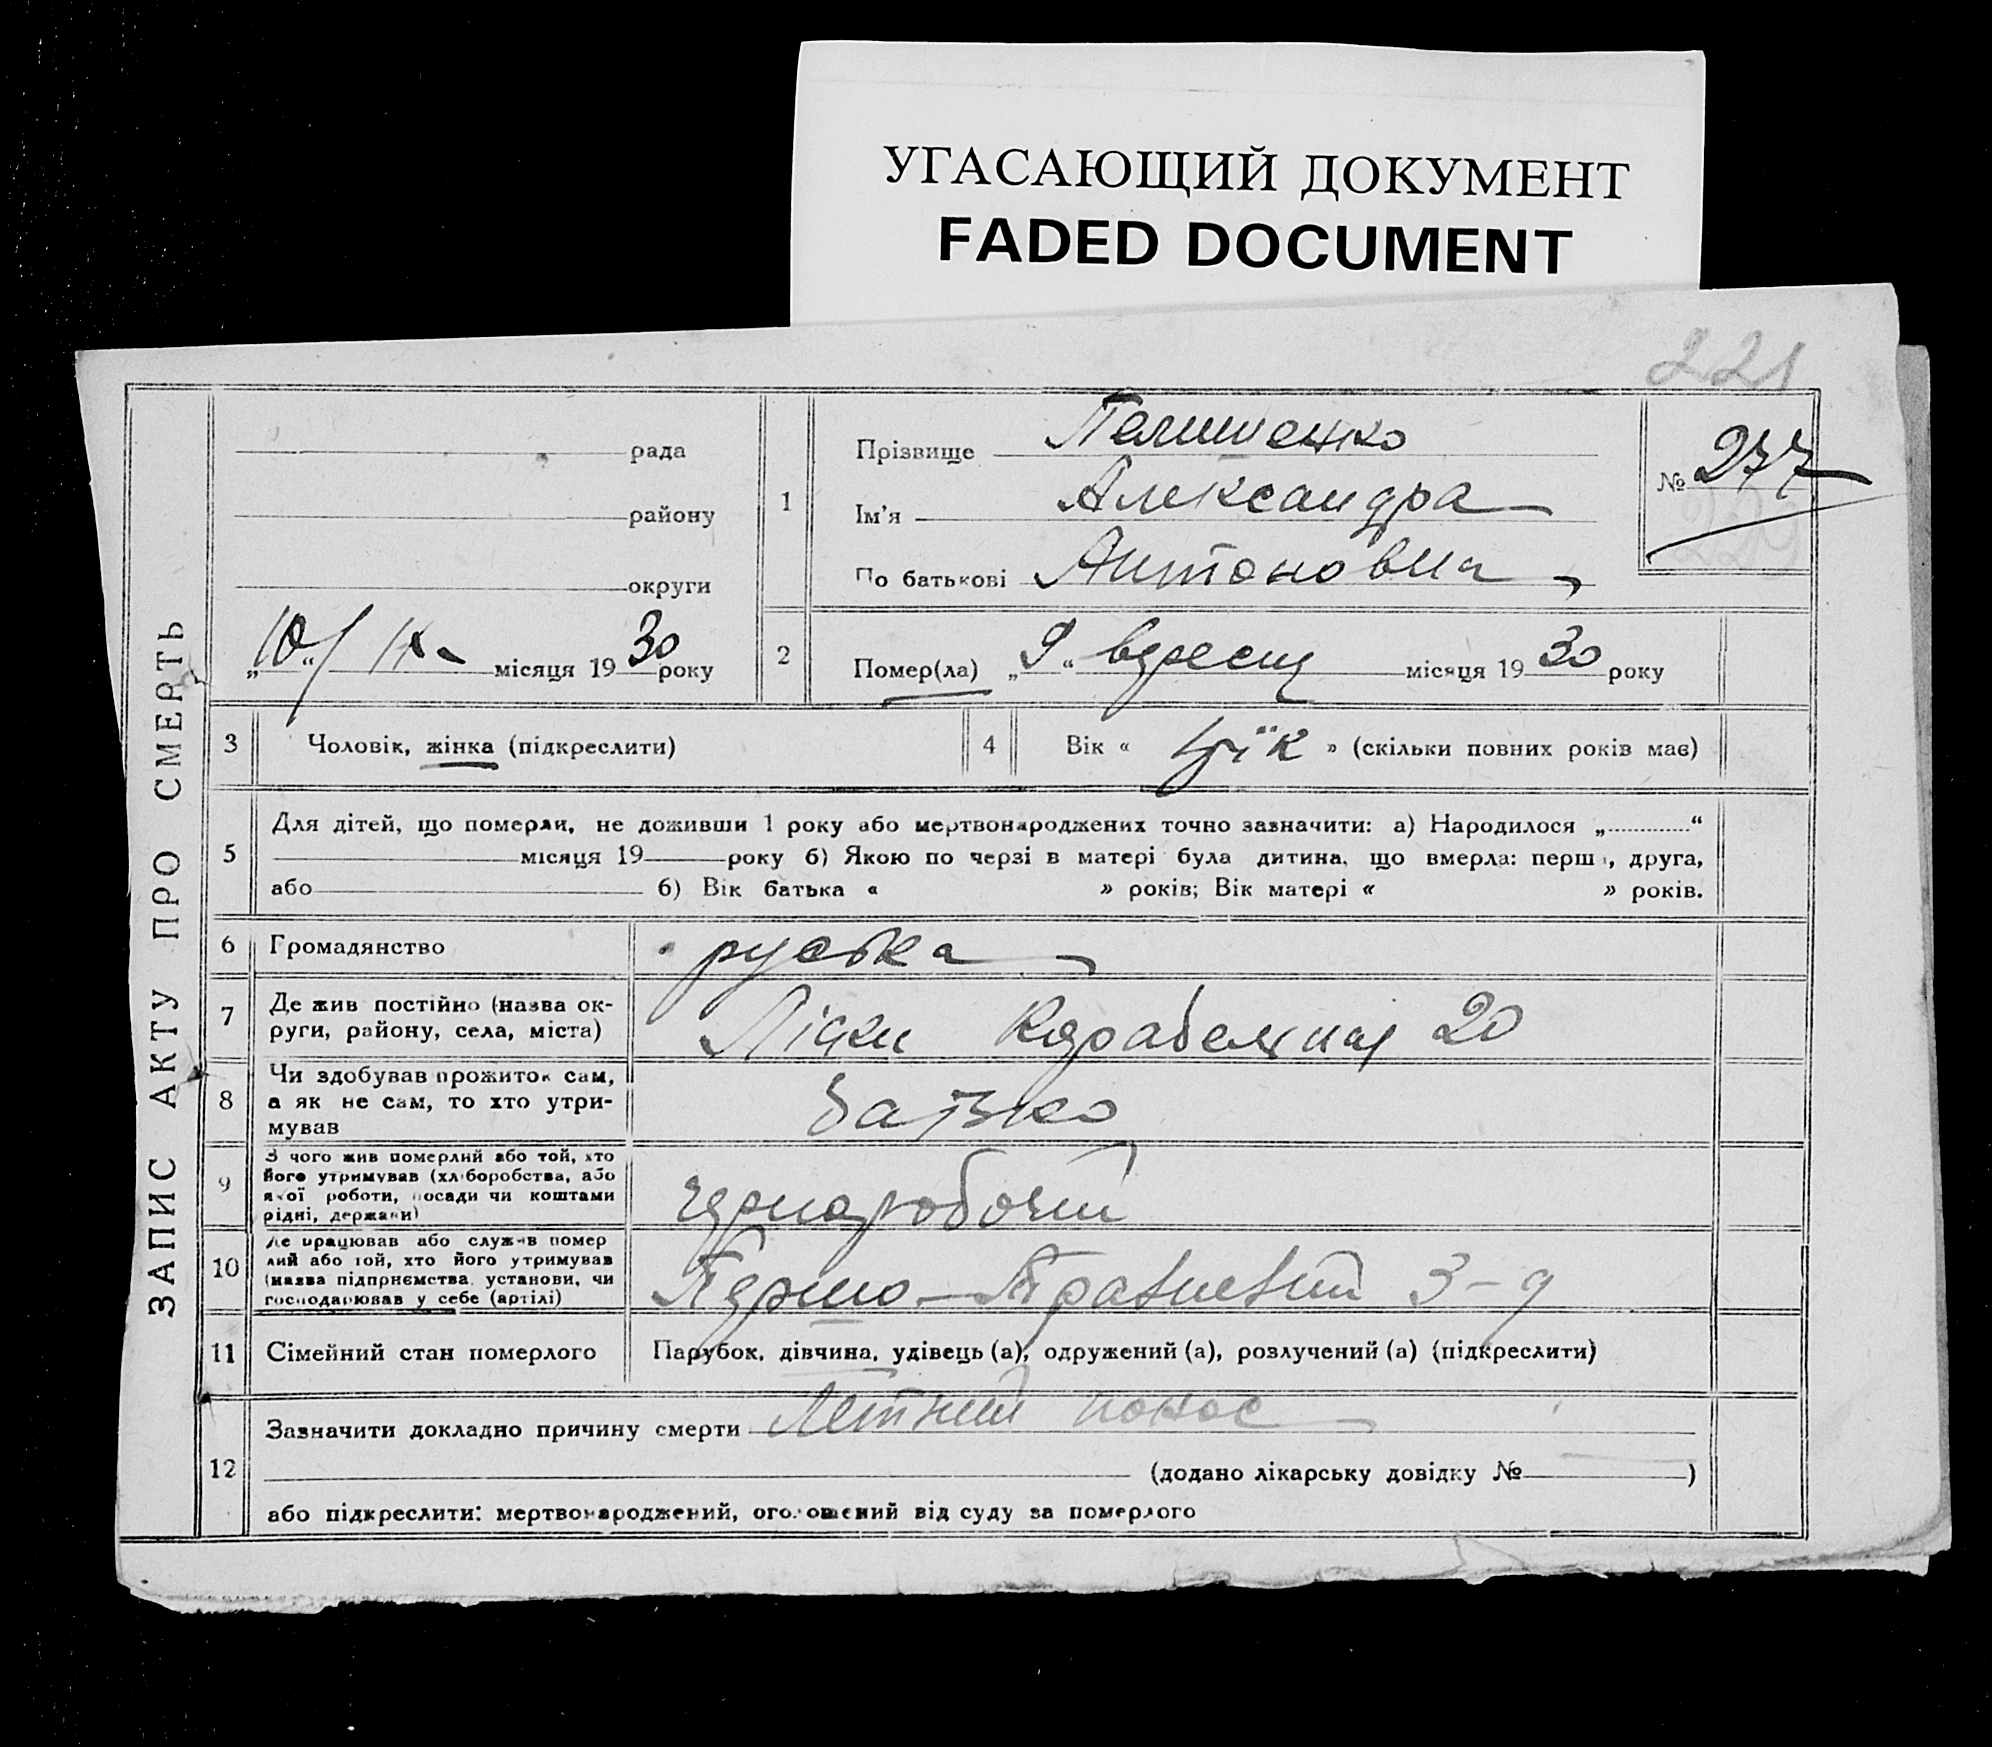 УГАСАЮЩИЙ ДОКУМЕНТ
FADED DOCUMENT
221
ЗАПИС АКТУ ПРО СМЕРТЬ
рада
району
округи
„10“ IX місяця 1930 року
1
Прізвище
Ім'я Александра
По батькові Антоновна
№ 277
2
Помер(ла) „9“ вересня місяця 1930 року
3
Чоловік, жінка (підкреслити)
4
Вік « 1 рік » (скільки повних років має)
5
Для дітей, що померли, не доживши 1 року або мертвонароджених точно зазначити: а) Народилося „ “
місяця 19 року б) Якою по черзі в матері була дитина, що вмерла: перша, друга,
або б) Вік батька « » років; Вік матері « » років.
6
Громадянство руська
7
Де жив постійно (назва ок-
руги, району, села, міста)
Піски 20
8
Чи здобував прожиток сам,
а як не сам, то хто утри-
мував
батько
9
З чого жив померлий або той, хто
його утримував (хліборобства, або
якої роботи, посади чи коштами
рідні, держави)
чернаробочий
10
Де працював або служив помер
лий або той, хто його утримував
(назва підприємства, установи, чи
господарював у себе (артілі)
Першо-Травневий З-д
11
Сімейний стан померлого
Парубок, дівчина, удівець (а), одружений (а), розлучений (а) (підкреслити)
12
Зазначити докладно причину смерти Летний понос
(додано лікарську довідку № )
або підкреслити: мертвонароджений, оголошений від суду за померлого